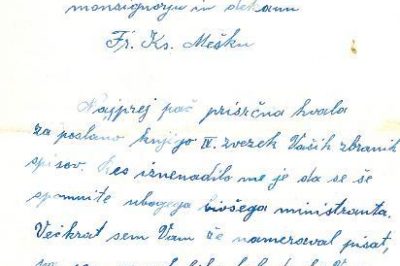 monsignorju in dekanu
Fr. Ks. Mešku
Najprej pač prisrčna hvala
za poslano knjigo IV. zvezek Vaših zbranih
spisov. Res iznenadilo me je da se še
spomnite ubogega bivšega ministranta.
Večkrat sem Vam že nameroval pisat,